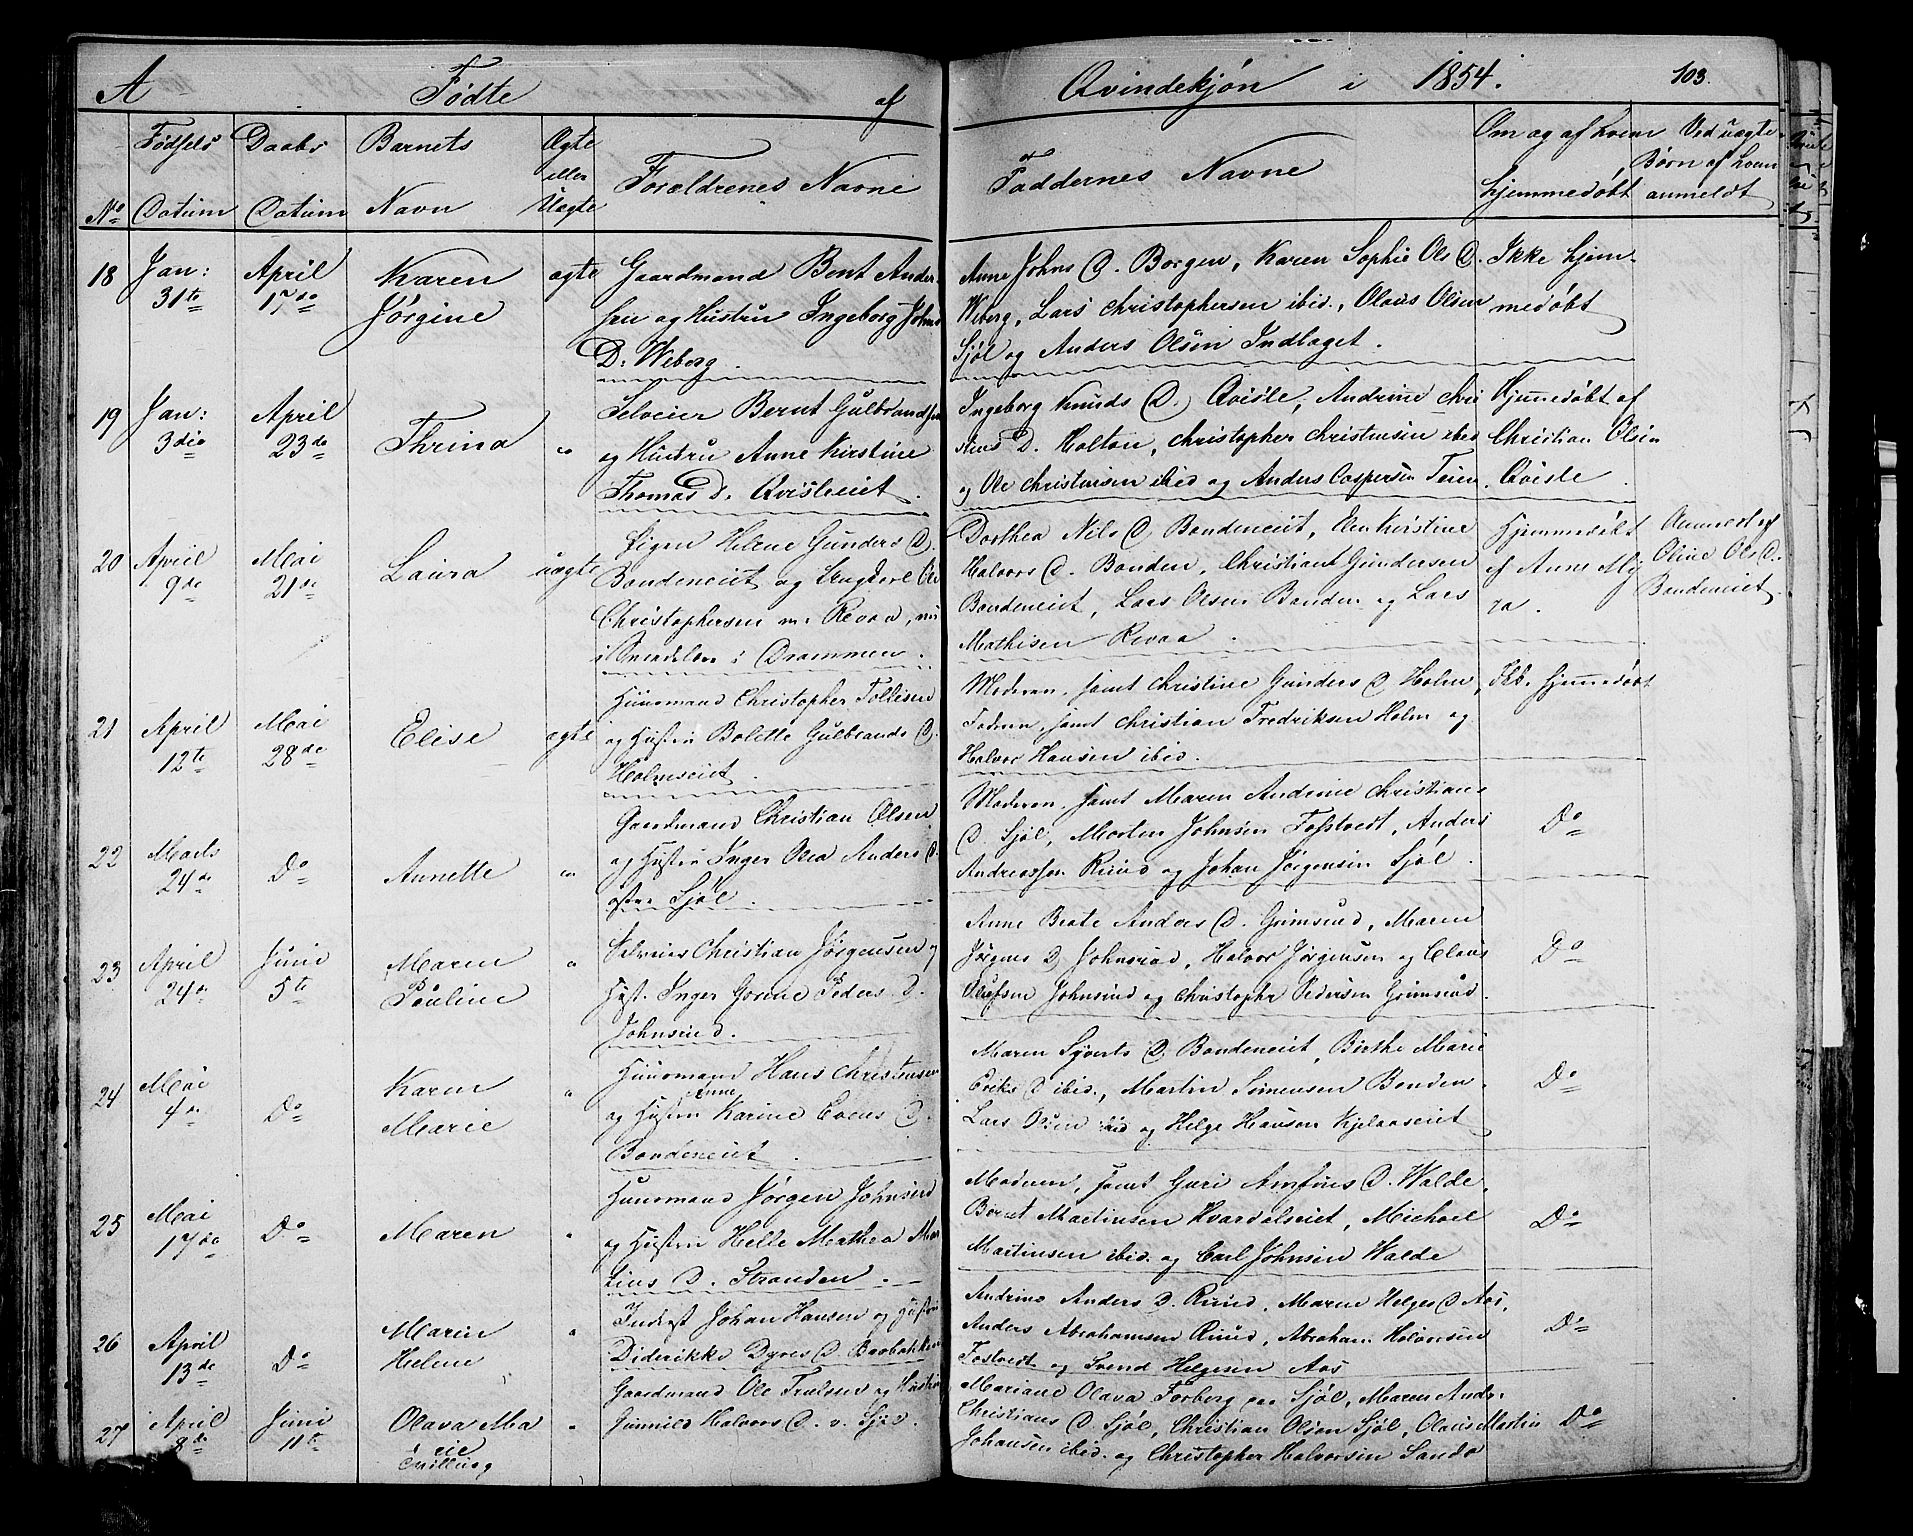 A Fødte af Qvindekjøn i 1854. 103.
No Fødsels Datum
Daabs Datum
Barnets Navn
Ægte eller Uægte
Forældrenes Navne
Faddernes Navne
Om og af hvem hjemmedøbt
Ved uægte Børn af hvem anmeldt
18
Jan:
31te
April
17de
Karen
Jørgine
ægte
Gaardmand Bent Ander
sen og Hustru Ingeborg Johns
D. Weberg.
Anne Johns D. Borgen, Karen Sophie Ols D.
Weberg, Lars Christophersen ibid., Olaus Olsen
Sjøl og Anders Olsen Indlaget.
Ikke hjem
medøbt
19
Jan:
3die
April
23de
Thrina
"
Selveier Bernt Gulbrandsen
og Hustru Anne Kirstine
Thomas D. Qvisleeiet.
Ingeborg Knuds D. Qvisle, Andrine Chri
stens D. Holton, Christopher Christensen ibid
og Ole Christensen ibid og Anders Caspersen Teien.
Hjemmedøbt af
Christian Olsen
Qvisle.
20
April
9de
Mai
21de
Laura
uægte
Pigen Helene Gunders D.
Bondeneiet og Ungkarl Ole
Christophersen Revaa, nu
i Drammen.
Dorthea Nils D Bondeneiet, Kirstine
Halvors D. Bonden, Christian Gundersen
Bondeneiet, Lars Olsen Bonden og Lars
Mathisen Revaa.
Hjemmedøbt
af Anne
Anmeldt af
Oline Ols D.
Bondeneiet.
21
April
12te
Mai
28de
Elise
ægte
Huusmand Christopher Tollefsen
og Hustru Bolette Gulbrands D.
Holmeneiet.
Moderen, samt Christine Gunders D Holm,
Faderen, samt Christian Fredriksen Holm og
Halvor Hansen ibid.
Ikke hjemmedøbt
22
Marts
24de
Do
Annette
"
Gaardmand Christian Olsen
og Hustru Inger Olea Anders D.
østre Sjøl.
Moderen, samt Maren Andrine Christians
D. Sjøl, Morten Johnsen Fosstvedt, Anders
Andreassen Ruud og Johan Jørgensen Sjøl.
Do
23
April
24de
Juni
5te
Maren
Pauline
"
Selveier Christian Jørgensen og
Hust. Inger Gorine Peders D.
Johnsrud.
Anne Beate Anders D. Grimsrud, Maren
Jørgens D Johnsrud, Halvor Jørgensen og Claus
Olufsen Johnsrud og Christopher Pedersen Grimsrud.
Do
24
Mai
4de
Do
Karen
Marie
"
Huusmand Hans Christensen
Anne
og Hustru Karine Evens D.
Bondeneiet.
Maren Syverts D Bondeneiet, Birthe Marie
Eriks D ibid., Martin Simensen Bonden,
Lars Olsen ibid og Helge Hansen Kjelaaseiet
Do
25
Mai
17de
Do
Maren
"
Huusmand Jørgen Johnsen
og Hustru Helle Mathea Mar
tins D. Stranden.
Moderen, samt Guri Amfins D. Walde,
Bernt Martinsen Hvardalseiet, Michael
Martinsen ibid. og Carl Johnsen Walde
Do
26
April
13de
Do
Maren
Helene
"
Inderst Johan Hansen og Hustru
Diderikke Dyres D. Barbakken
Andrine Anders D. Ruud, Maren Helges D Aas,
Anders Abrahamsen Ruud, Abraham Halvorsen
Fostvedt og Svend Helgesen Aas
Do
27
April
8de
Juni
11te
Olava Ma
rie
Tvilling
"
Gaardmand Ole Trulssen og Hustru
Gunnild Halvors D. v. Sjøl.
Mariane Olava Forberg paa Sjøl, Maren Andr.
Christians D Sjøl, Christian Olsen Sjøl, Olaus Martin
Johansen ibid. og Christopher Halvorsen Sando
Do